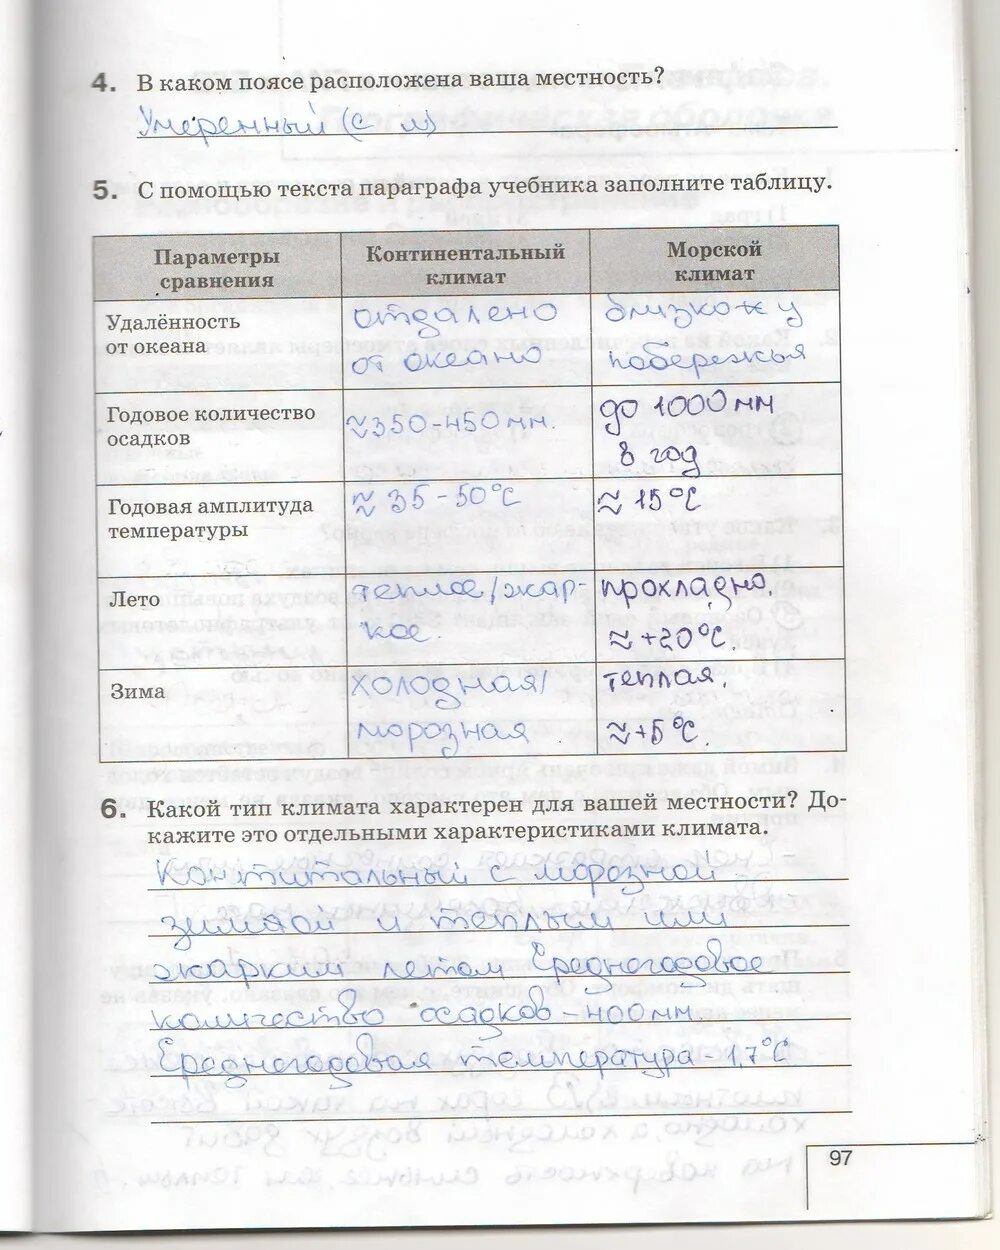 4. В каком поясе расположена ваша местность?
Умеренный (с м)
5. С помощью текста параграфа учебника заполните таблицу.
Параметры сравнения
Континентальный климат
Морской климат
Удалённость от океана
отдалено от океано
близко к у побережья
Годовое количество осадков
≈350-450 мм.
до 1000 мм в год
Годовая амплитуда температуры
≈ 35 - 50°С
≈ 15°С
Лето
теплое/жаркое.
прохладно. ≈ +20°С.
Зима
холодная/морозная
теплая. ≈ +5°С.
6. Какой тип климата характерен для вашей местности? До-
кажите это отдельными характеристиками климата.
Контитальный с морозной
зимой и теплым или
жарким летом Среднегодовое
количество осадков - 400 мм.
Среднегодовая температура - 1,7°С
97